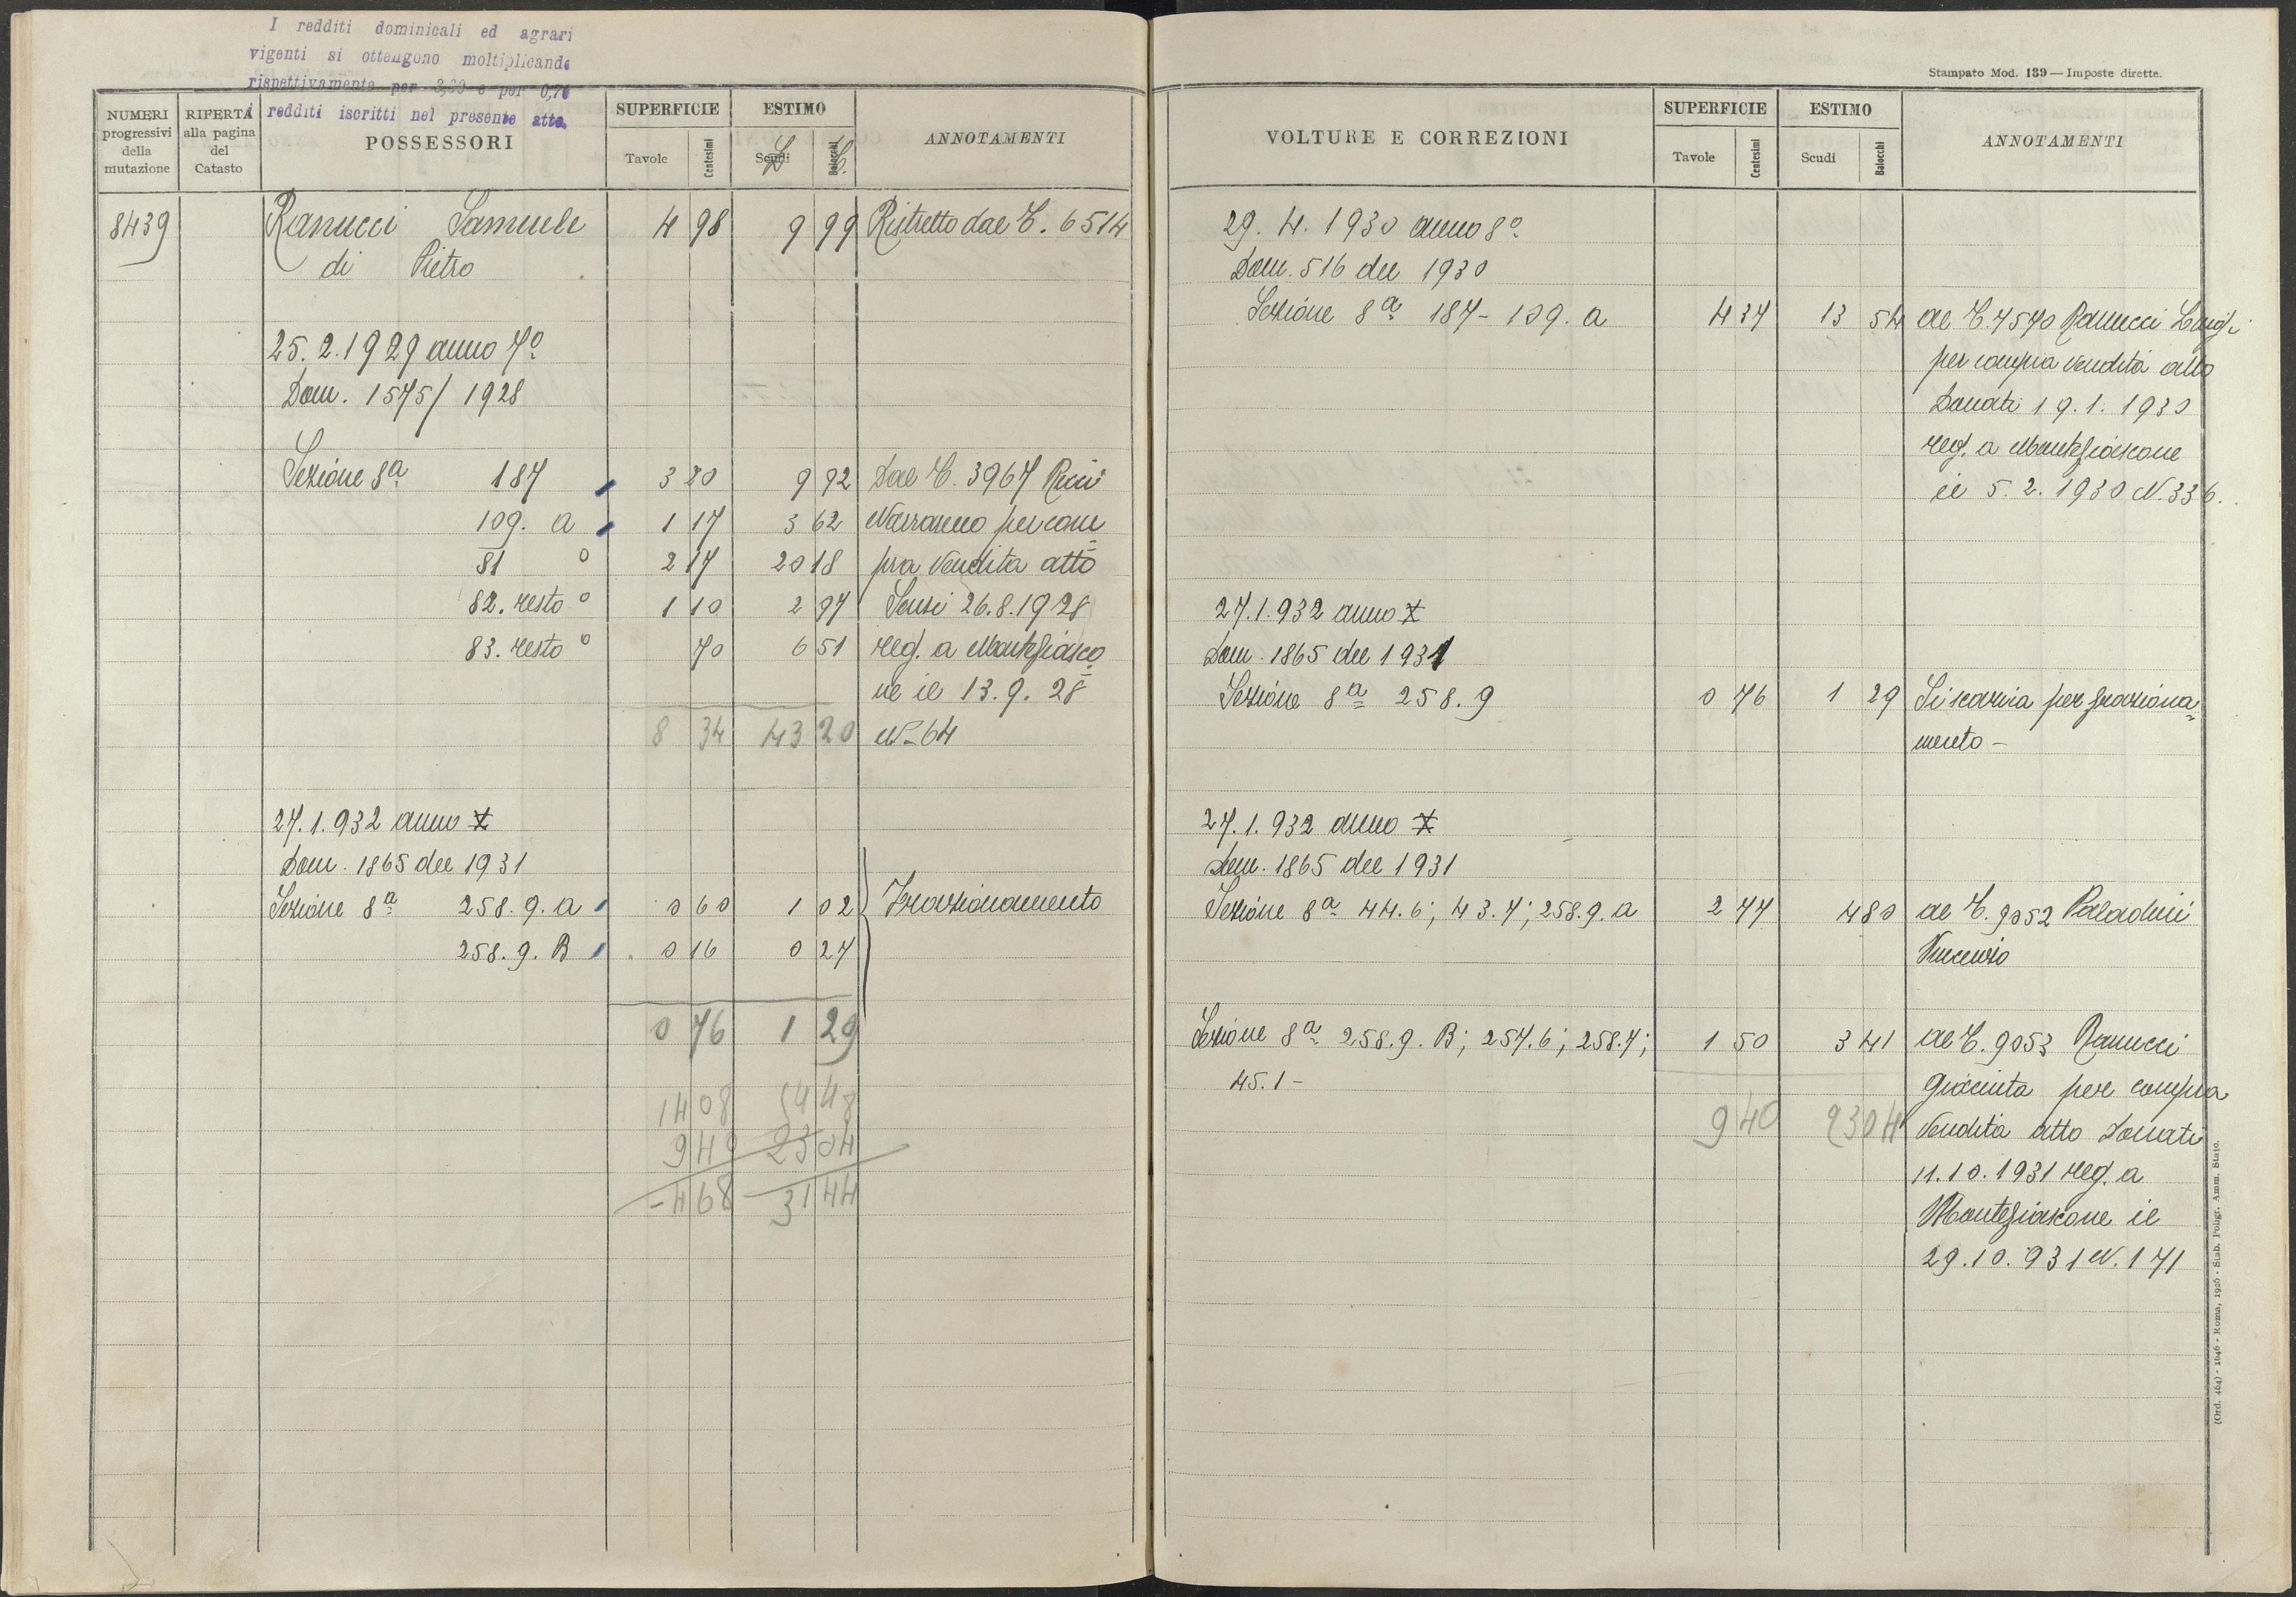 I redditi dominicali ed agrari
vigenti si ottengono moltiplicando
rispettivamente per 3,20 e per 0,70
i redditi iscritti nel presente atto.
NUMERI progressivi della mutazione
RIFERTA alla pagina del Catasto
POSSESSORI
SUPERFICIE
Tavole Centesimi
ESTIMO
Scudi L Baiocchi C.
ANNOTAMENTI
8439 Ranucci Samuele 4 98 9 99 Ristretto dal C. 6514
di Pietro
25.2.1929 anno 7º
Dom. 1575/1928
Sezione 8ª 187 3 20 9 92 Dal C. 3967 Ricci
109. a 1 17 3 62 Nazzareno per com
81 o 2 17 20 18 pra vendita atto
82. resto o 1 10 2 97 Sensi 26.8.1928
83. resto o 70 6 51 reg. a Montefiasco
ne il 13.9.28
8 34 43 20 N-64
27.1.932 anno X
Dom. 1865 del 1931
Sezione 8ª 258.9.a 0 60 1 02 Frazionamento
258.9.B 0 16 0 27
0 76 1 29
14 08 54 48
9 40 23 04
4 68 31 44
Stampato Mod. 139 — Imposte dirette.
VOLTURE E CORREZIONI
SUPERFICIE
Tavole Centesimi
ESTIMO
Scudi Baiocchi
ANNOTAMENTI
29.4.1930 anno 8º
Dom. 516 del 1930
Sezione 8ª 187-109.a 4 37 13 54 al C. 7570 Ranucci Luigi
per compra vendita atto
Donati 19.1.1930
reg. a Montefiascone
il 5.2.1930 N.336.
27.1.932 anno X
Dom. 1865 del 1931
Sezione 8ª 258.9 0 76 1 29 Si scarica per fraziona
mento -
27.1.932 anno X
Dom. 1865 del 1931
Sezione 8ª 44.6; 43.7; 258.9.a 2 77 4 80 al C. 9052 Paladini
Vincenzo
Sezione 8ª 258.9.B; 257.6; 258.7; 1 50 3 41 al C. 9053 Ranucci
45.1-
Giacinta per compra
9 40 23 04 vendita atto Donati
11.10.1931 reg. a
Montefiascone il
29.10.931 N. 171
(Ord. 464) - 1046 - Roma, 1926 - Stab. Poligr. Amm. Stato.